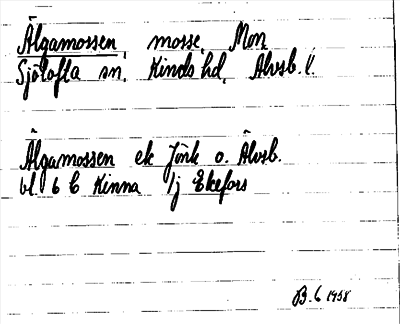 Älgamossen, mosse, Mon
Sjötofta sn. Kinds hd, Älvsb. l.
Älgamossen ek Jönk o. Älvsb.
bl. 6 C Kinna 1j Ekefors
B. 6 1958